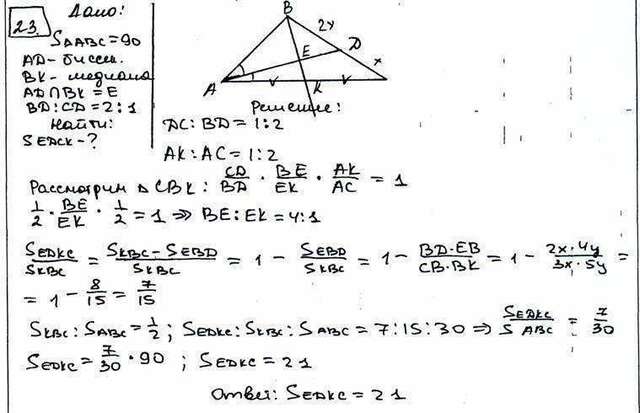 23. Дано:
S△ABC=90
AD- биссек.
BK- медиана
AD∩BK=E
BD:CD=2:1
Найти:
SEDCK-?
B
2x
D
E
x
A
K
Решение:
DC:BD=1:2
AK:AC=1:2
Рассмотрим △ CBK: CD/BD · BE/EK · AK/AC = 1
1/2 · BE/EK · 1/2 = 1 ⇒ BE:EK=4:1
SEDKC/SKBC = SKBC-SEBD/SKBC = 1 - SEBD/SKBC = 1 - BD·EB/CB·BK = 1 - 2x·4y/3x·5y =
= 1 - 8/15 = 7/15
SKBC:SABC=1/2; SEDKC:SKBC:SABC=7:15:30 ⇒ SEDKC/SABC = 7/30
SEDKC=7/30·90; SEDKC=21
Ответ: SEDKC=21